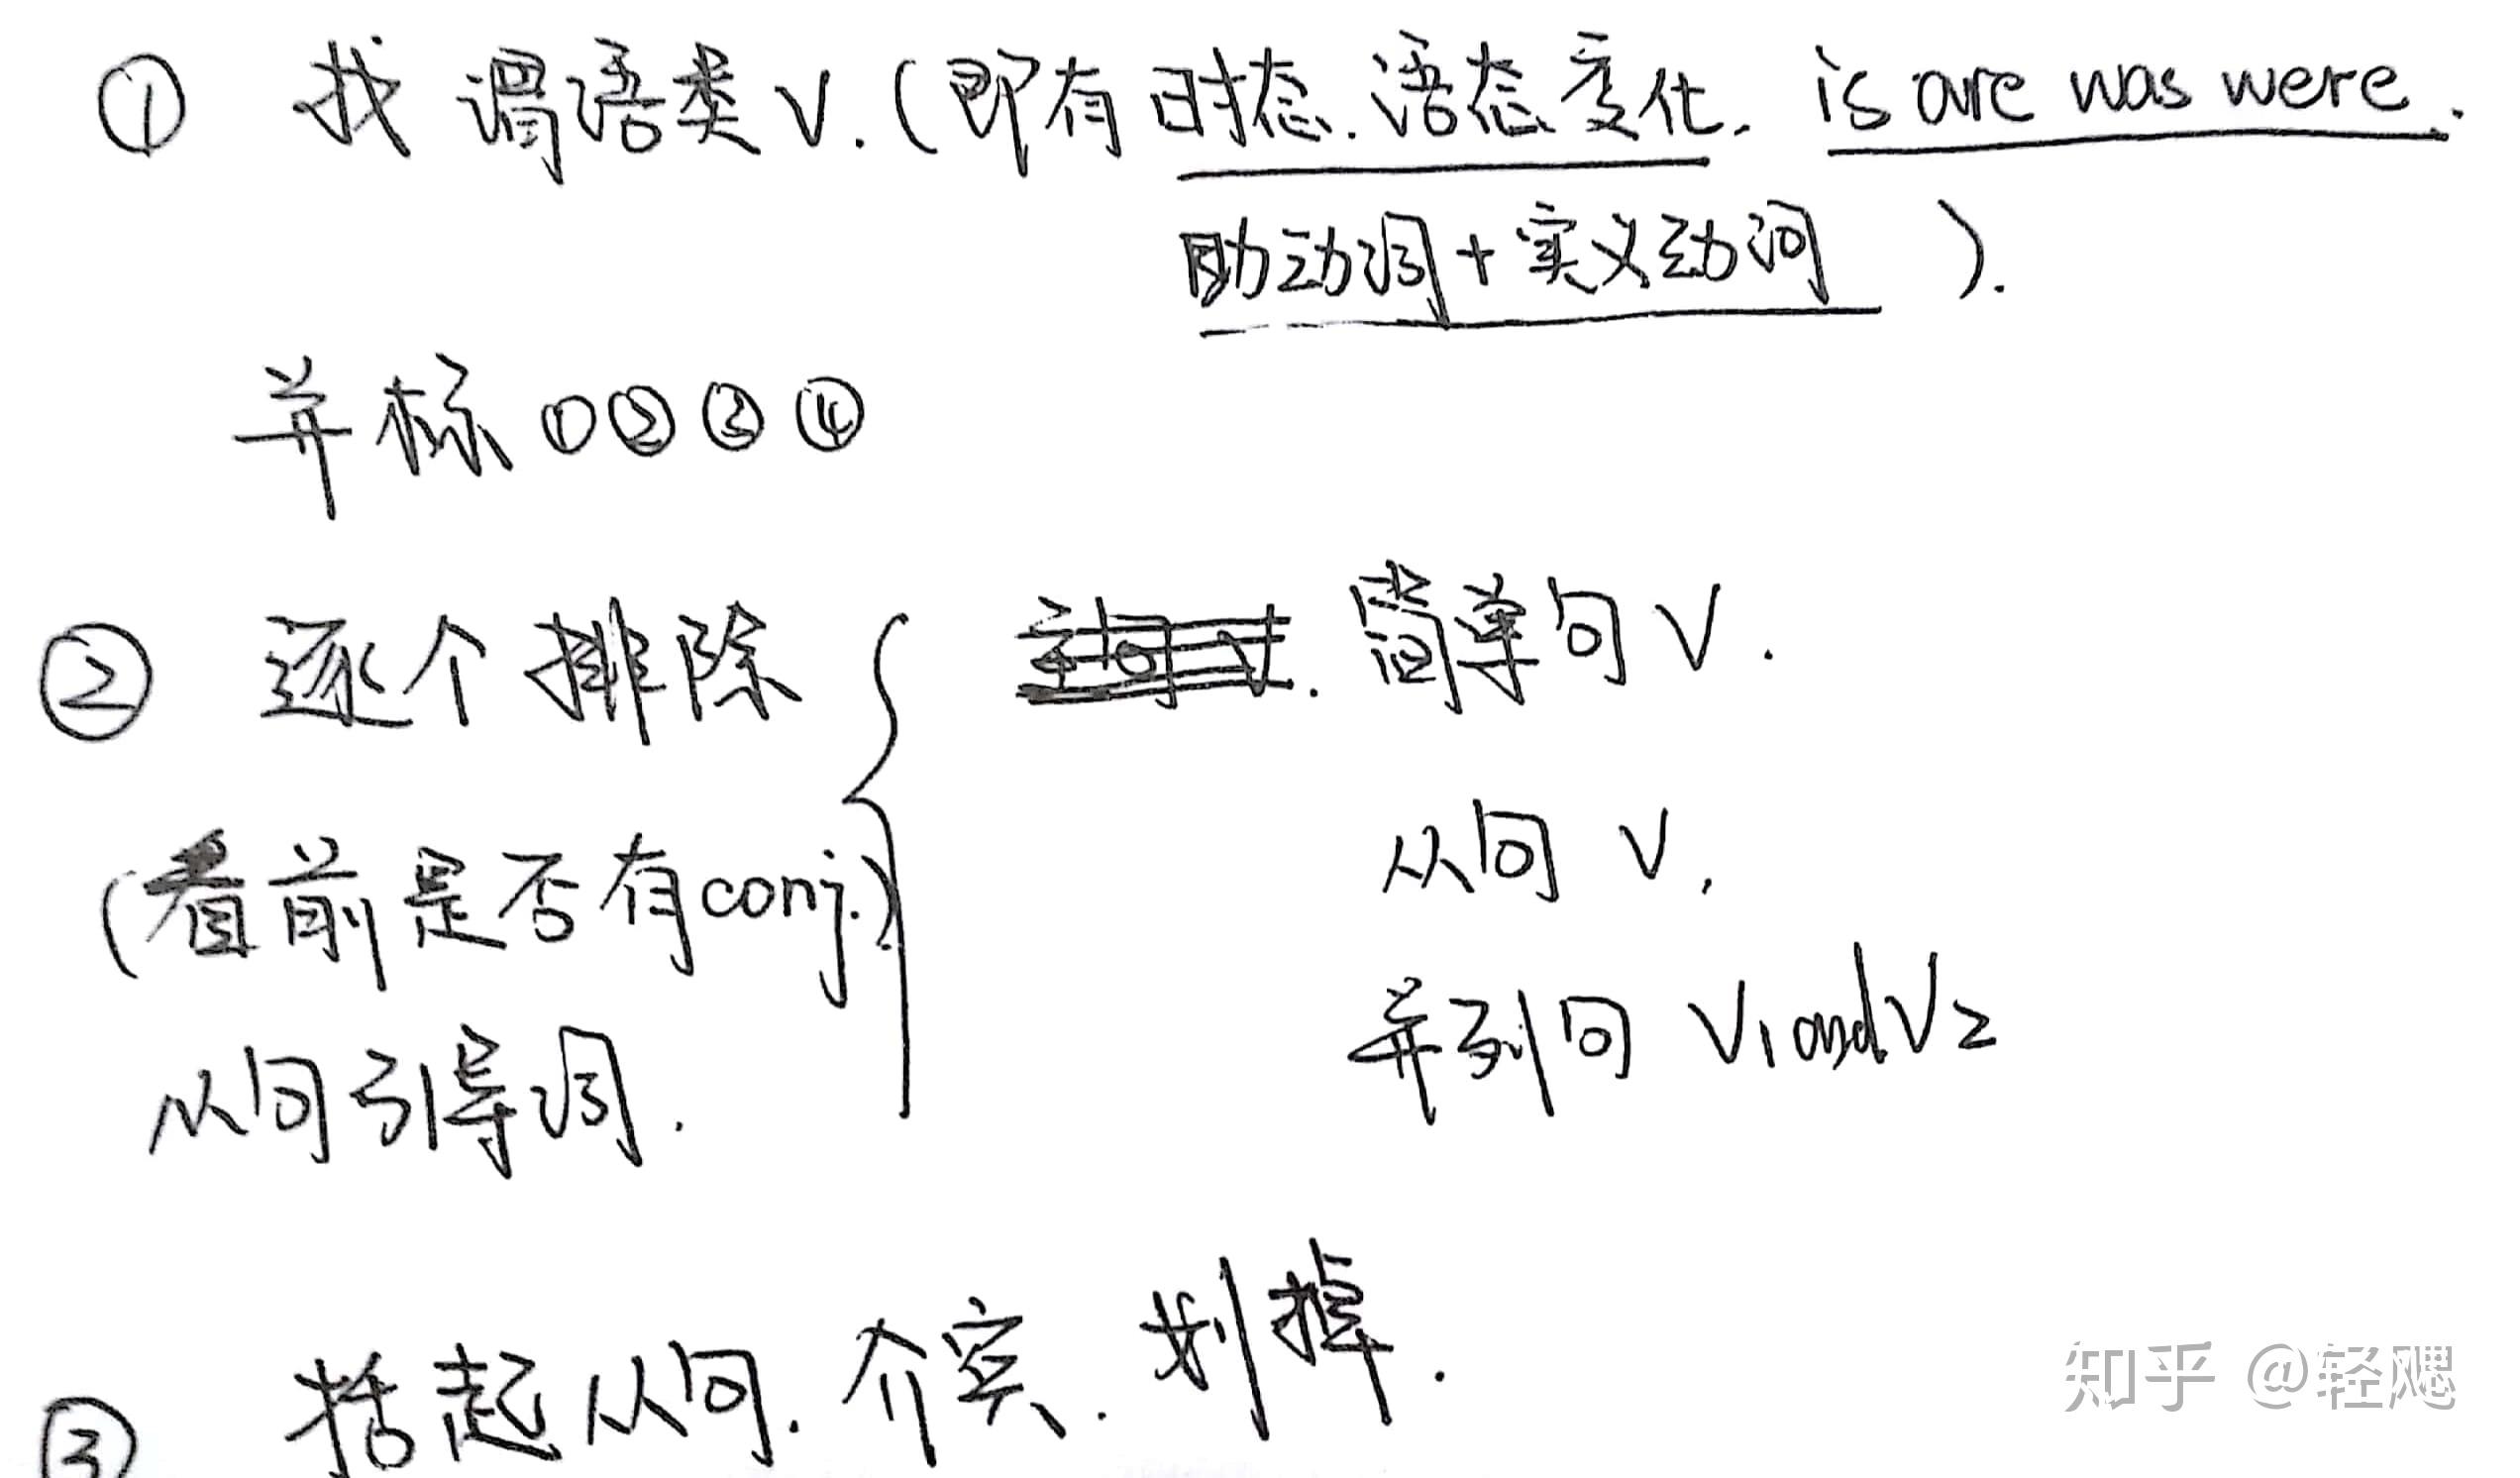 ① 找 谓语类 v.(即有时态.语态变化. is are was were.
助动词+实义动词 ).
并标①②③④
② 逐个排除
(看前是否有conj.)
从句引导词.
简单句 V.
从句 V.
并列句 V1 and V2
③ 括起从句.介宾.划掉.
知乎 @轻飔